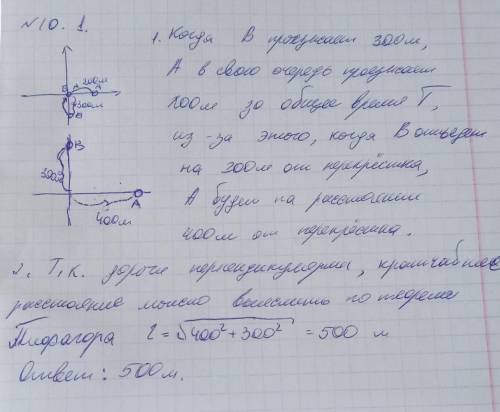 №10. 1.
1. Когда В проезжает 300м,
А в свою очередь проезжает
200м за общее время Т,
из-за этого, когда В отъедет
на 300м от перекрёстка,
А будет на расстоянии
400м от перекрёстка.
В А 200м А
300м
В
В
300м
А
400м
2. Т.к. дороги перпендикулярны, кратчайшее
расстояние можно вычислить по теореме
Пифагора l = √400² + 300² = 500 м
Ответ: 500м.